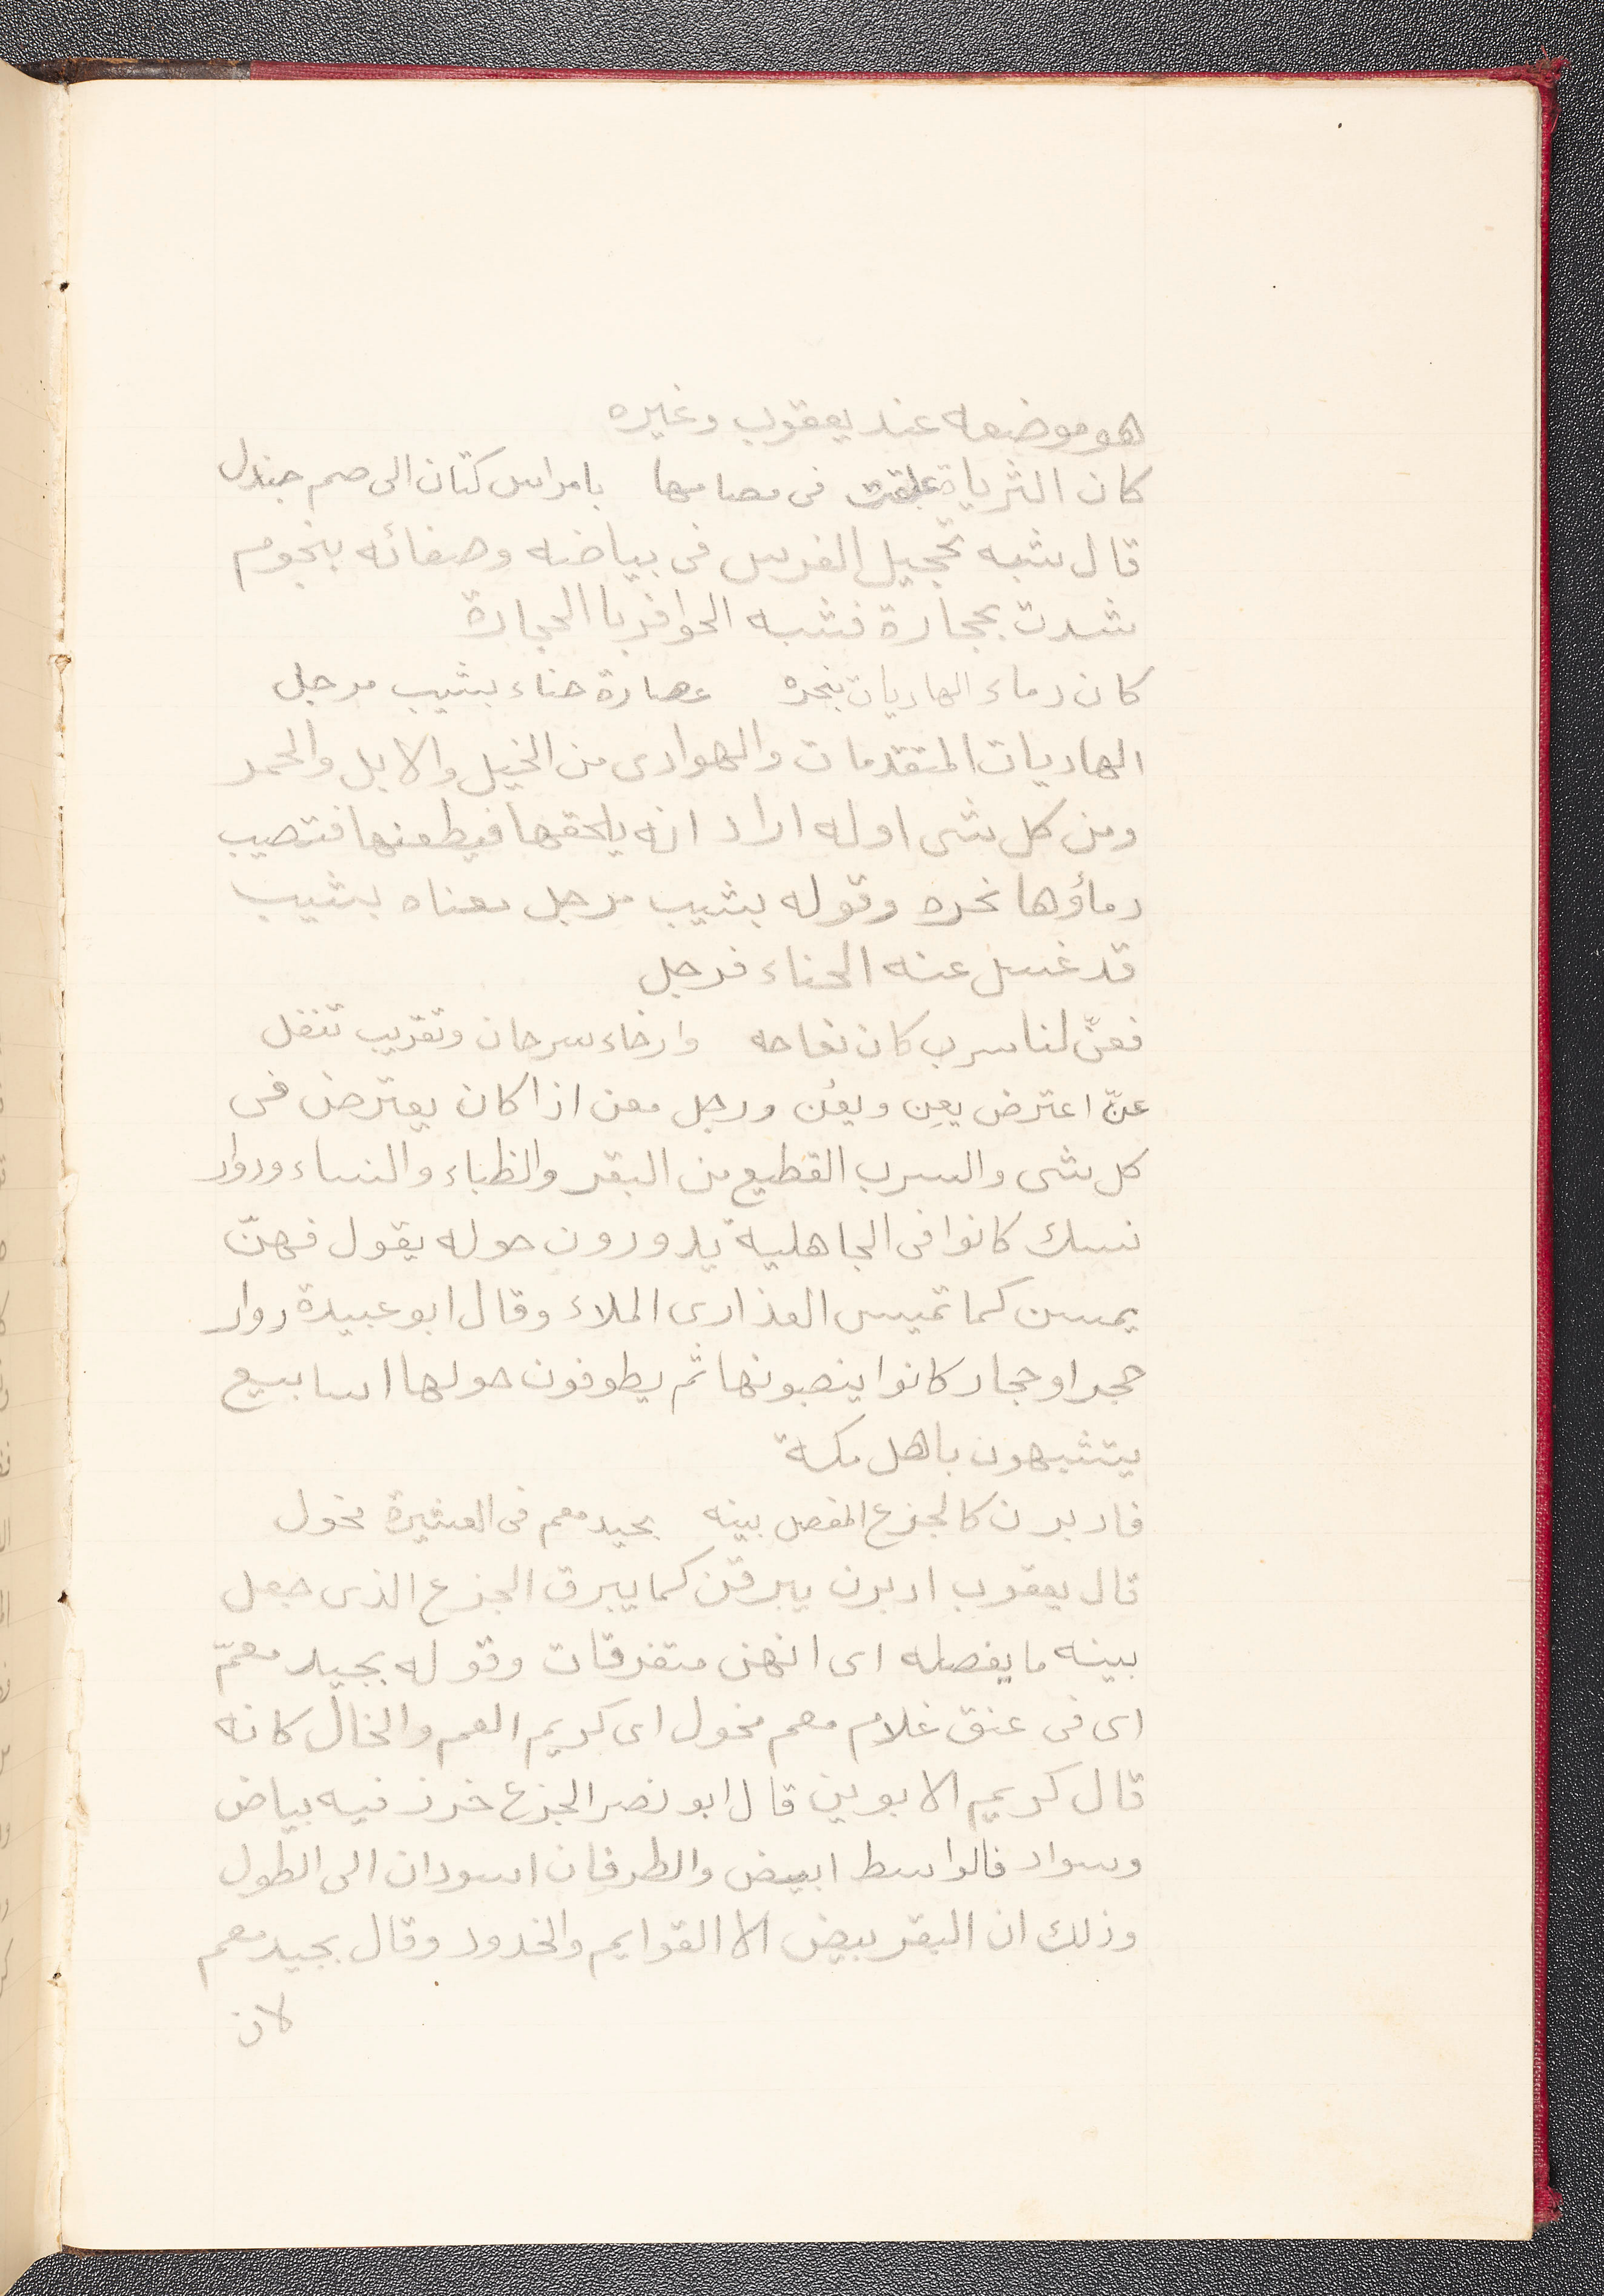 هو موضعه عند يعقوب وغيره
كان الثريا علقت فى مصامها بامراس كتان الى صم جندل
قال شبه تحجيل الفرس فى بياضه وصفائه بنجوم
شدت بحجارة فشبه الحوافر با الحجارة
كان دماء الهاديات بنحره عصارة حناء بشيب مرجل
الهاديات المتقدمات والهوادى من الخيل والابل والحمر
ومن كل شى اوله اراد انه يلحقها فيطعنها فتصيب
دماؤها نحره وقوله بشيب مرجل معناه بشيب
قد غسل عنه الحناء فرجل
فعنّ لنا سرب كان نعاجه وارخاء سرحان وتقريب تتفل
عنّ اعترض يعِن ويعُن ورجل معن اذا كان يعترض فى
كل شى والسرب القطيع من البقر والظباء والنساء ودوار
نسك كانوا فى الجاهلية يدورون حوله يقول فهنّ
يمسن كما تميس العذارى الملاء وقال ابو عبيدة دوار
حجر او حجار كانوا ينصبونها ثم يطوفون حولها اسابيع
يتشبهون باهل مكة
فادبرن كالجزع المفصل بينه بجيد معم فى العشيرة مخول
قال يعقوب ادبرن يبرقن كما يبرق الجزع الذى جعل
بينه ما يفصله اى انهن متفرقات وقوله بجيد معمّ
اى فى عنق غلام معم مخول اى كريم العم والخال كانه
قال كريم الابوين قال ابو نصر الجزع خرز فيه بياض
وسواد فالواسط ابيض والطرفان اسودان الى الطول
وذلك ان البقر بيض الا القوايم والخدود وقال بجيد معم
لان